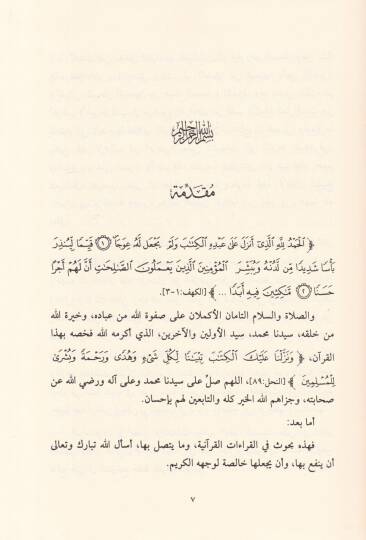 بسم الله الرحمن الرحيم
مقدمة
﴿ ٱلْحَمْدُ لِلَّهِ ٱلَّذِىٓ أَنزَلَ عَلَىٰ عَبْدِهِ ٱلْكِتَٰبَ وَلَمْ يَجْعَل لَّهُۥ عِوَجَا ۜ ١ قَيِّمًا لِّيُنذِرَ
بَأْسًا شَدِيدًا مِّن لَّدُنْهُ وَيُبَشِّرَ ٱلْمُؤْمِنِينَ ٱلَّذِينَ يَعْمَلُونَ ٱلصَّٰلِحَٰتِ أَنَّ لَهُمْ أَجْرًا
حَسَنًا ٢ مَّٰكِثِينَ فِيهِ أَبَدًا ... ﴾ [الكهف: ١-٣].
والصلاة والسلام التامان الأكملان على صفوة الله من عباده، وخيرة الله
من خلقه، سيدنا محمد، سيد الأولين والآخرين، الذي أكرمه الله فخصه بهذا
القرآن، ﴿ وَنَزَّلْنَا عَلَيْكَ ٱلْكِتَٰبَ تِبْيَٰنًا لِّكُلِّ شَىْءٍ وَهُدًى وَرَحْمَةً وَبُشْرَىٰ
لِلْمُسْلِمِينَ ﴾ [النحل: ٨٩]، اللهم صلّ على سيدنا محمد وعلى آله ورضي الله عن
صحابته، وجزاهم الله الخير كله والتابعين لهم بإحسان.
أما بعد:
فهذه بحوث في القراءات القرآنية، وما يتصل بها، أسأل الله تبارك وتعالى
أن ينفع بها، وأن يجعلها خالصة لوجهه الكريم.
٧